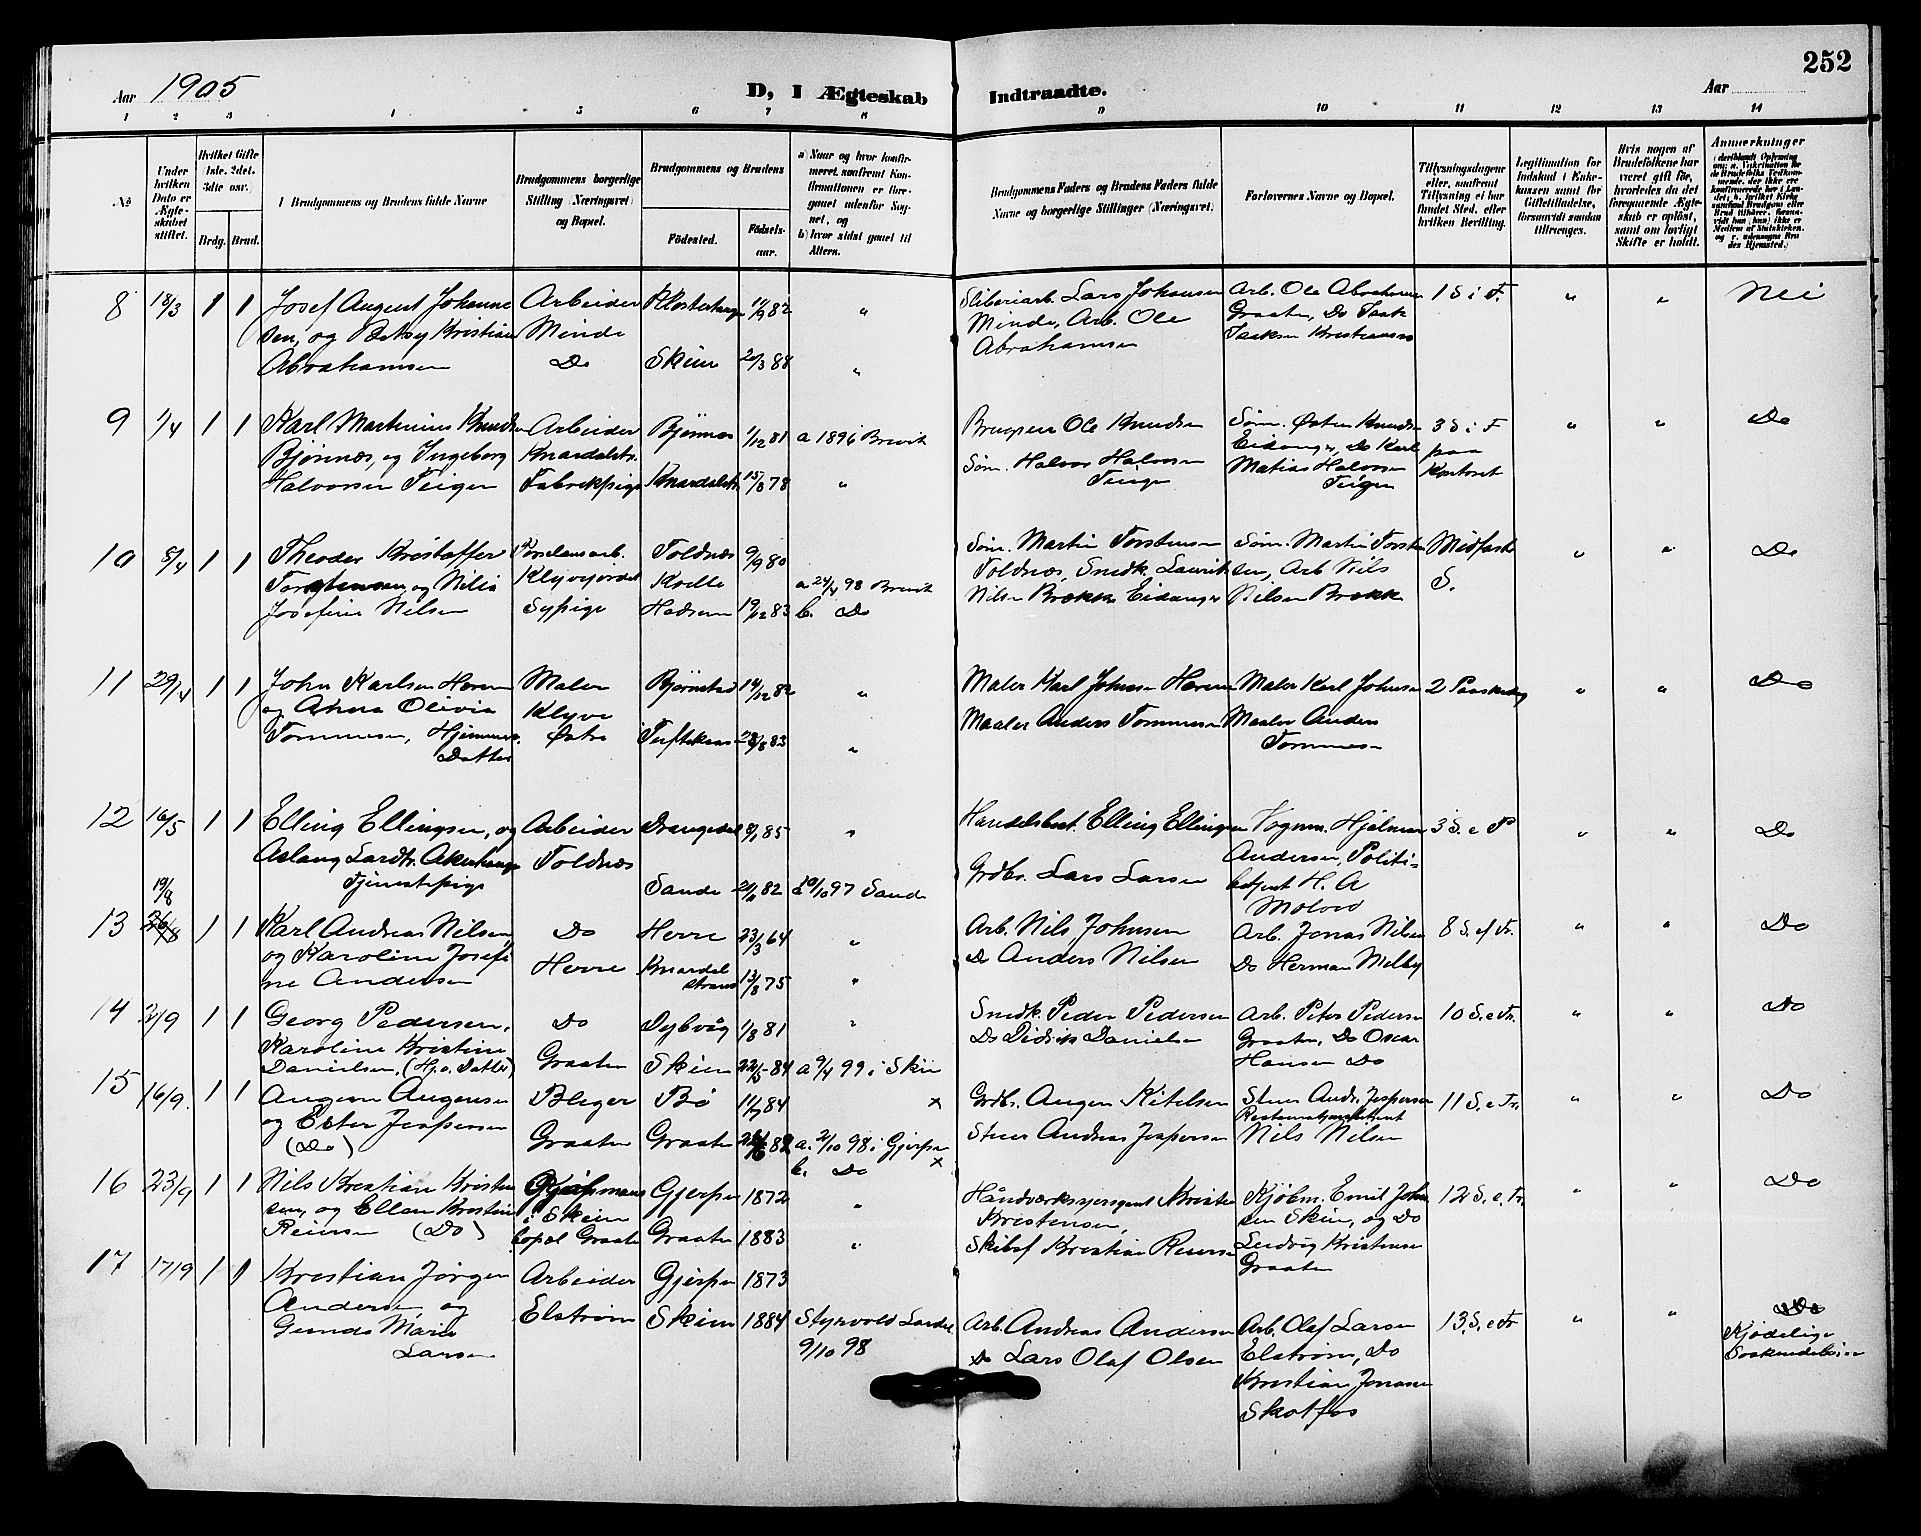 252
Aar 1905
D, I Ægteskab Indtraadte.
Aar
1 2 3 4 5 6 7 8 9 10 11 12 13 14
№
Under hvilken Dato er Ægteskabet stiftet.
Hvilket Gifte 1ste, 2det, 3die osv.
Brdg. Brud.
Brudgommens og Brudens fulde Navne
Brudgommens borgerlige Stilling (Næringsvei) og Bopæl.
Brudgommens og Brudens
Fødested.
Fødselsaar.
a) Naar og hvor konfirmeret, saafremt Konfirmationen er foregaaet udenfor Sognet, og
b) hvor sidst gaaet til Alters.
Brudgommens Faders og Brudens Faders fulde Navne og borgerlige Stillinger (Næringsvei).
Forlovernes Navne og Bopæl.
Tillysningsdagene eller, saafremt Tillysning ei har fundet Sted, efter hvilken Bevilling.
Legitimation for Indskud i Enkekassen samt for Giftetilladelse, forsaavidt saadan tiltrænges.
Hvis nogen af Brudefolkene har været gift før, hvorledes da det foregaaende Ægteskab er opløst, samt om lovligt Skifte er holdt.
Anmerkninger
8 18/3 1 1
Josef August Johannesen, og Betsy Kristian
Abrahamsen
Arbeider
Minde
Do
Klosterhaugen 11/9 82 "
Skien 20/3 88 "
Sliberiarb. Lars Johansen
Minde, Arb. Ole
Abrahamsen
Arb. Ole Abrahamsen
Graaten, Do Isak
Isaksen Kristiansen
1 S i F. " " Nei
9 1/4 1 1
Karl Martinius Knudsen
Bjørnæs, og Ingeborg
Halvorsen Teigen
Arbeider
Knardalstr.
Fabrikpige
Bjørnæs 1/12 81 a 1896 Brevik
Knardalstr 15/3 78 "
Ole Knudsen
Søm. Halvor Halvorsen
Teigen
Søm. Østen Knudsen
Eidanger, Do Karl
Matias Halvorsen
Teigen
3 S i F
paa
Kontoret
" " Do
10 8/4 1 1
Theodor Kristoffer
Torstensen, og Nilia
Josefine Nilsen
Porselansarb.
Klyvejordet
Sypige
Toldnæs 9/9 80
Hedsum 19/12 83
a 24/4 98 Brevik
b. Do
Søm. Martin Torstensen
Toldnæs, Snedk. Laurits
Nilsen Brække Eidanger
Søm. Martin Torstensen, Arb Nils
Nilsen Brække
Midfaste
S.
" " Do
11 29/4 1 1
John Karlsen Herum
og Anna Olivia
Tommesen, Hjemmev.
Datter
Maler
Klyve
Østre
Bjørnstad 14/12 82 "
Tuftekaas 28/8 83 "
Maler Karl Johnsen Herum
Maaler Anders Tommesen
Maler Karl Johnsen
Maaler Anders
Tommesen
2 Paaskedag " " Do
12 16/5 1 1
Elling Ellingsen, og
Aslaug Larsdtr. Akerhaugen
Tjenestepige
Arbeider
Toldnæs
Drangedal 85 "
Sande 82 10/10 97 Sande
Handelsbet. Elling Ellingsen
Grdbr. Lars Larsen
Vognm. Hjalmar
Andersen, Politibetjent H. A
3 S. e P " " Do
13 19/8 26/8 1 1
Karl Andreas Nilsen
og Karoline Josefine Andersen
Do
Herre
Herre 23/3 64 "
Knardalstrand 13/8 75 "
Arb. Nils Johnsen
Do Anders Nilsen
Arb. Jonas Nilsen
Do Herman Melby
8 S. ef Tr. " " Do
14 2/9 1 1
Georg Pedersen,
Karoline Kristine
Danielsen, (Hj.v. Datter)
Do
Graaten
Dybvåg 1/8 81 "
Skien 22/5 84 a 9/4 99 i Skien
Snedk. Peder Pedersen
Do Didrik Danielsen
Arb. Peter Pedersen
Graaten, Do Oscar
Hansen Do
10 S. e Tr. " " Do
15 16/9. 1 1
Augen Augensen
og Ester Jespersen
(Do)
Bleger
Graaten
Bø 11/9 84 x
Graaten 82 a. 2/10 98 i Gjerpen
b. Do x
Grdbr. Augen Kitelsen
Stuer Andreas Jespersen
Stuer Andr. Jespersen
Nils Nilsen
11 S. e Tr. " " Do
16 23/9 1 1
Nils Kristian Kristensen, og Ellen Kristine
Reiersen (Do)
i Skien
bopæl Graaten
Gjerpen 1872 "
Graaten 1883 "
Håndværksvensgent Krister
Kristensen,
Skibsf Kristian Reiersen
Kjøbm. Emil Johnsen Skien, og Do
Ludvig Kristensen
Graaten
12 S. e. Tr. " " Do
17 17/9 1 1
Kristian Jørgen
Andersen, og
Gunda Marie
Larsen
Arbeider
Elstrøm
Gjerpen 1873
Skien 1884 Styrvold Lardal
9/10 98
Arb. Andreas Andersen
Do Lars Olaf Olsen
Arb. Olaf Larsen
Elstrøm, Do
Kristian Jonasen
Skotfos
13. S. e Tr " "
Do
Kjødelige
Søskendebørn